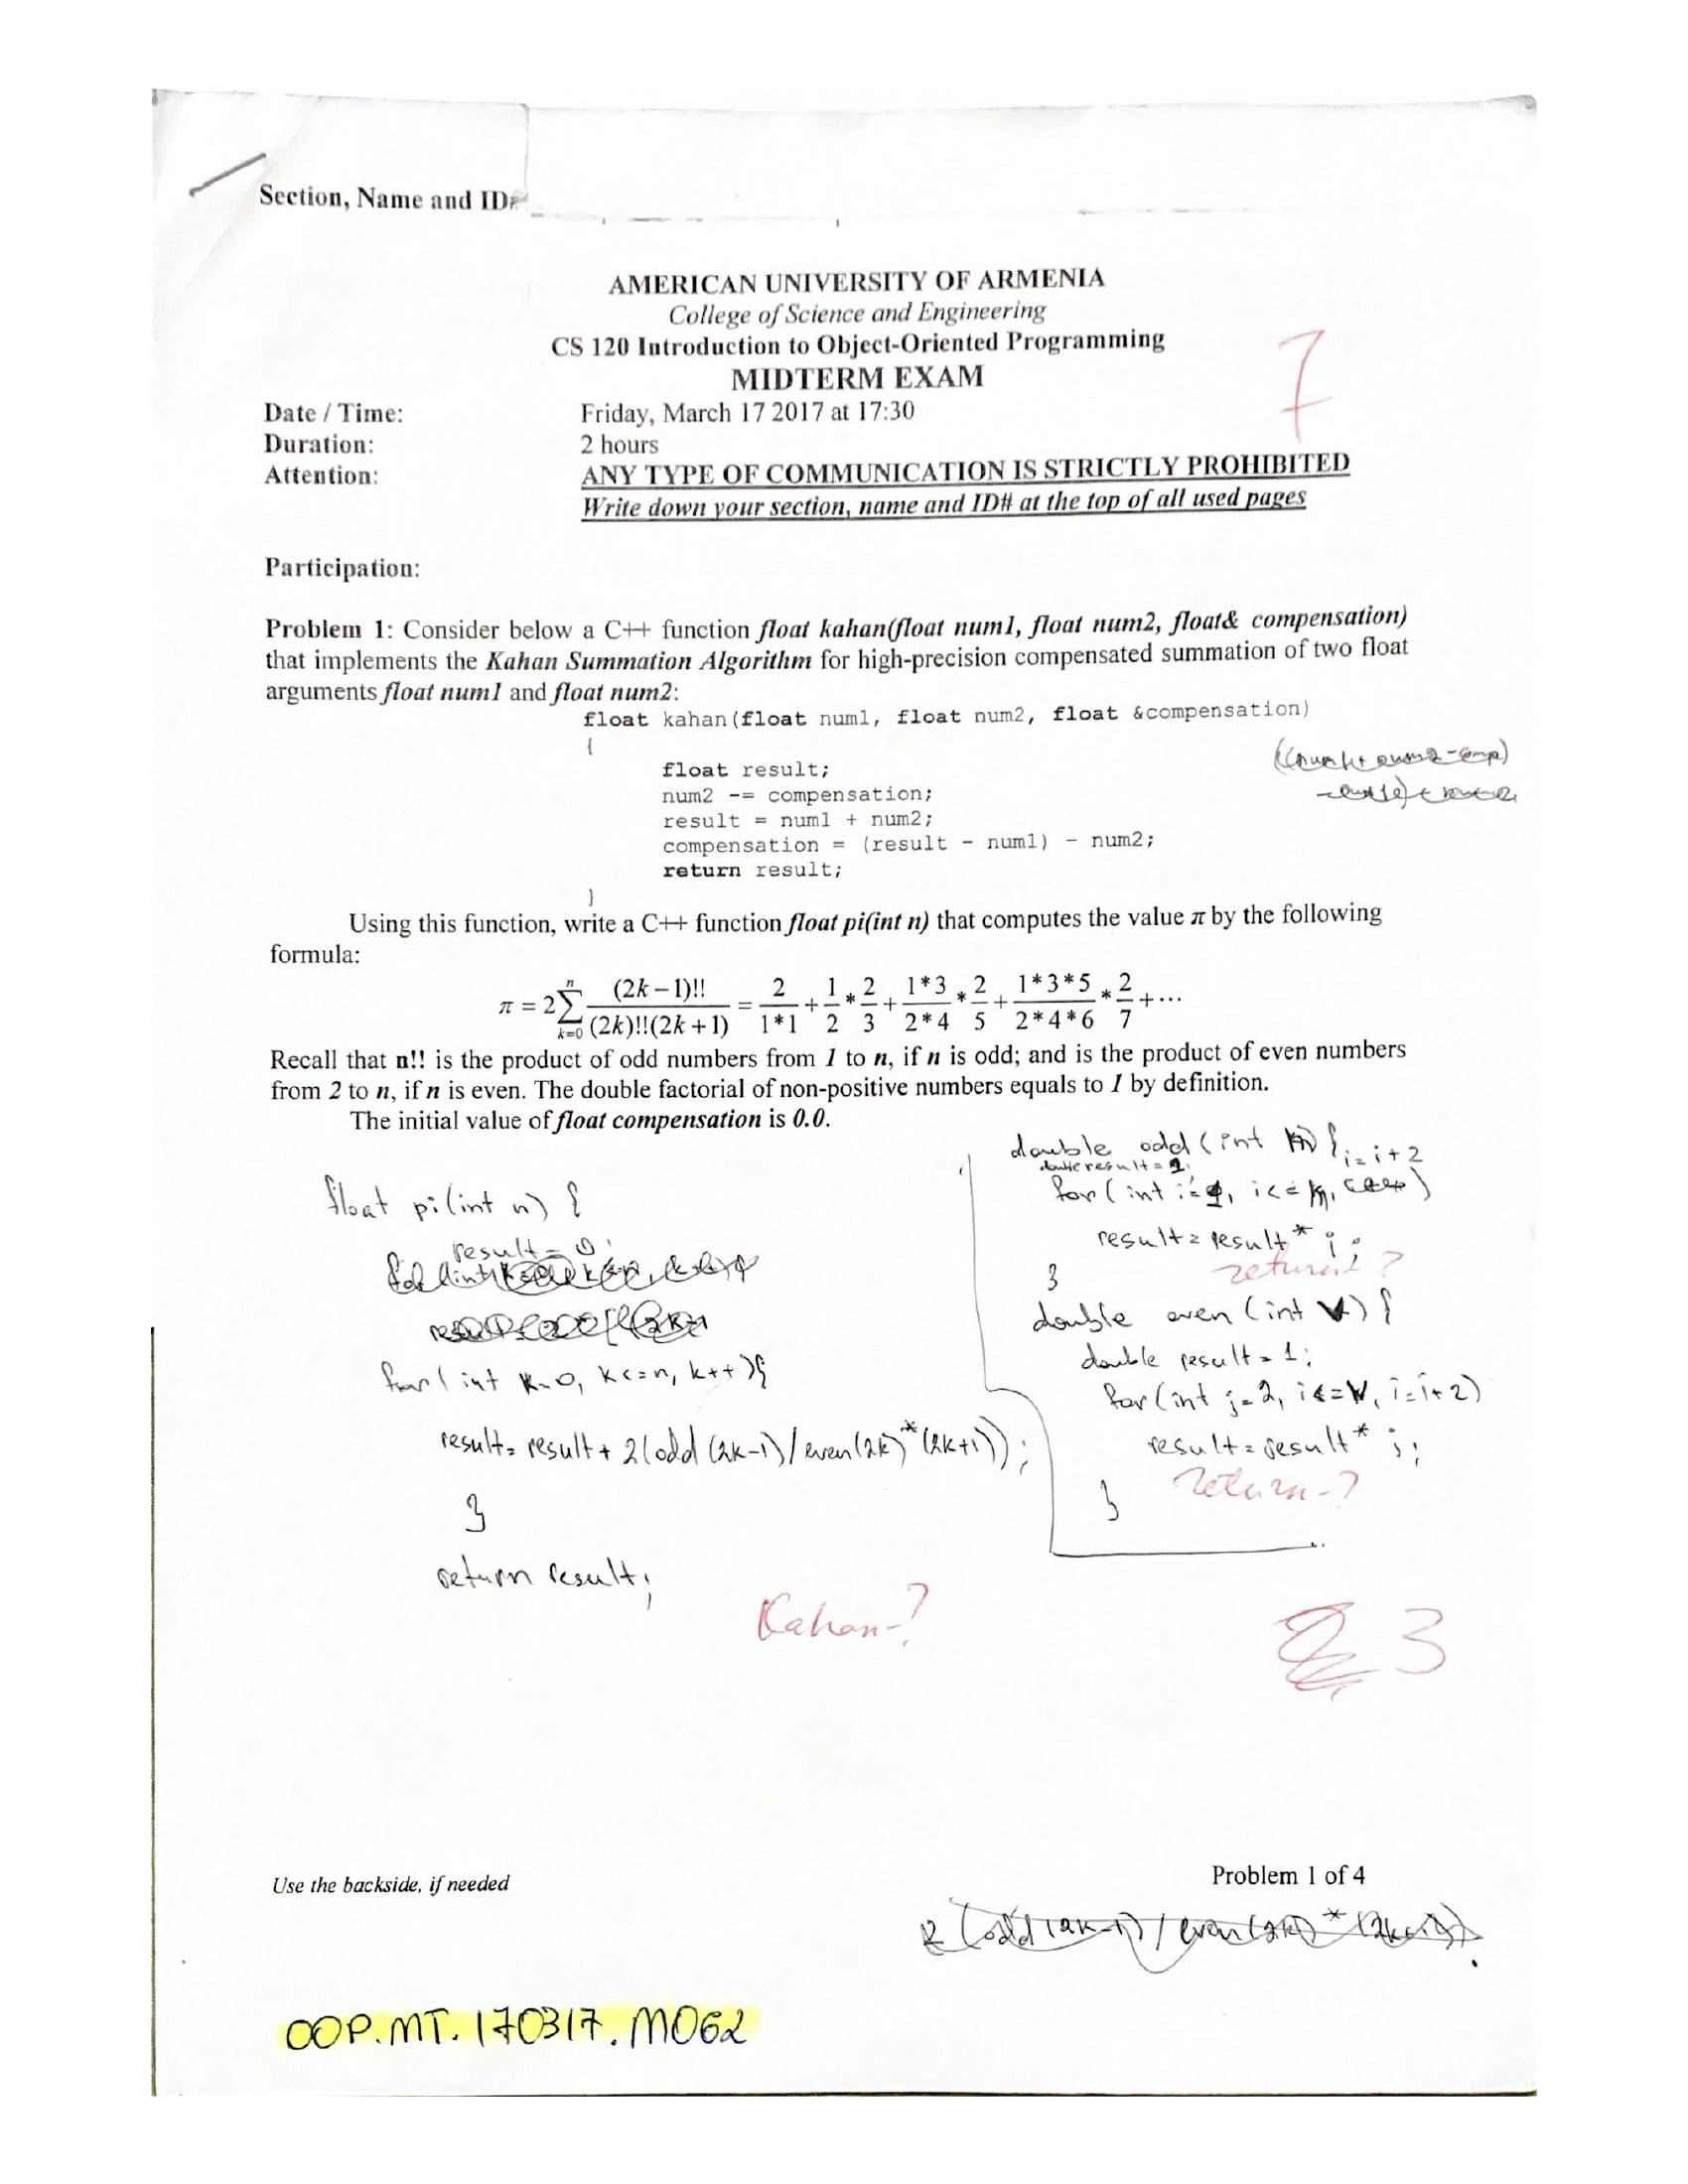 Section, Name and ID#
AMERICAN UNIVERSITY OF ARMENIA
College of Science and Engineering
CS 120 Introduction to Object-Oriented Programming
MIDTERM EXAM
7
Date / Time: Friday, March 17 2017 at 17:30
Duration: 2 hours
Attention: ANY TYPE OF COMMUNICATION IS STRICTLY PROHIBITED
Write down your section, name and ID# at the top of all used pages
Participation:
Problem 1: Consider below a C++ function float kahan(float num1, float num2, float& compensation)
that implements the Kahan Summation Algorithm for high-precision compensated summation of two float
arguments float num1 and float num2:
float kahan(float num1, float num2, float &compensation)
{
float result;
num2 -= compensation;
result = num1 + num2;
compensation = (result - num1) - num2;
return result;
}
Using this function, write a C++ function float pi(int n) that computes the value π by the following
formula:
π = 2 ∑_{k=0}^{n} (2k-1)!! / (2k)!!(2k+1) = 2/1*1 + 1/2 * 2/3 + 1*3/2*4 * 2/5 + 1*3*5/2*4*6 * 2/7 + ...
Recall that n!! is the product of odd numbers from 1 to n, if n is odd; and is the product of even numbers
from 2 to n, if n is even. The double factorial of non-positive numbers equals to 1 by definition.
The initial value of float compensation is 0.0.
float pi(int n) {
result = 0;
for( int k=0, k<=n, k++){
result= result + 2(odd (2k-1)/even(2k)*(2k+1));
}
return result;
Kahan-?
double odd (int ) {
double result = 1;
i=i+2
for( int i=1, i<= , )
result= result * i;
return ?
}
double even (int ) {
double result = 1;
for(int j=2, i<= , i=i+2)
result= result * j;
return-?
}
3
Use the backside, if needed
Problem 1 of 4
2 (odd (2k-1) / even(2k) * (2k+1)).
OOP.MT.170317.M062